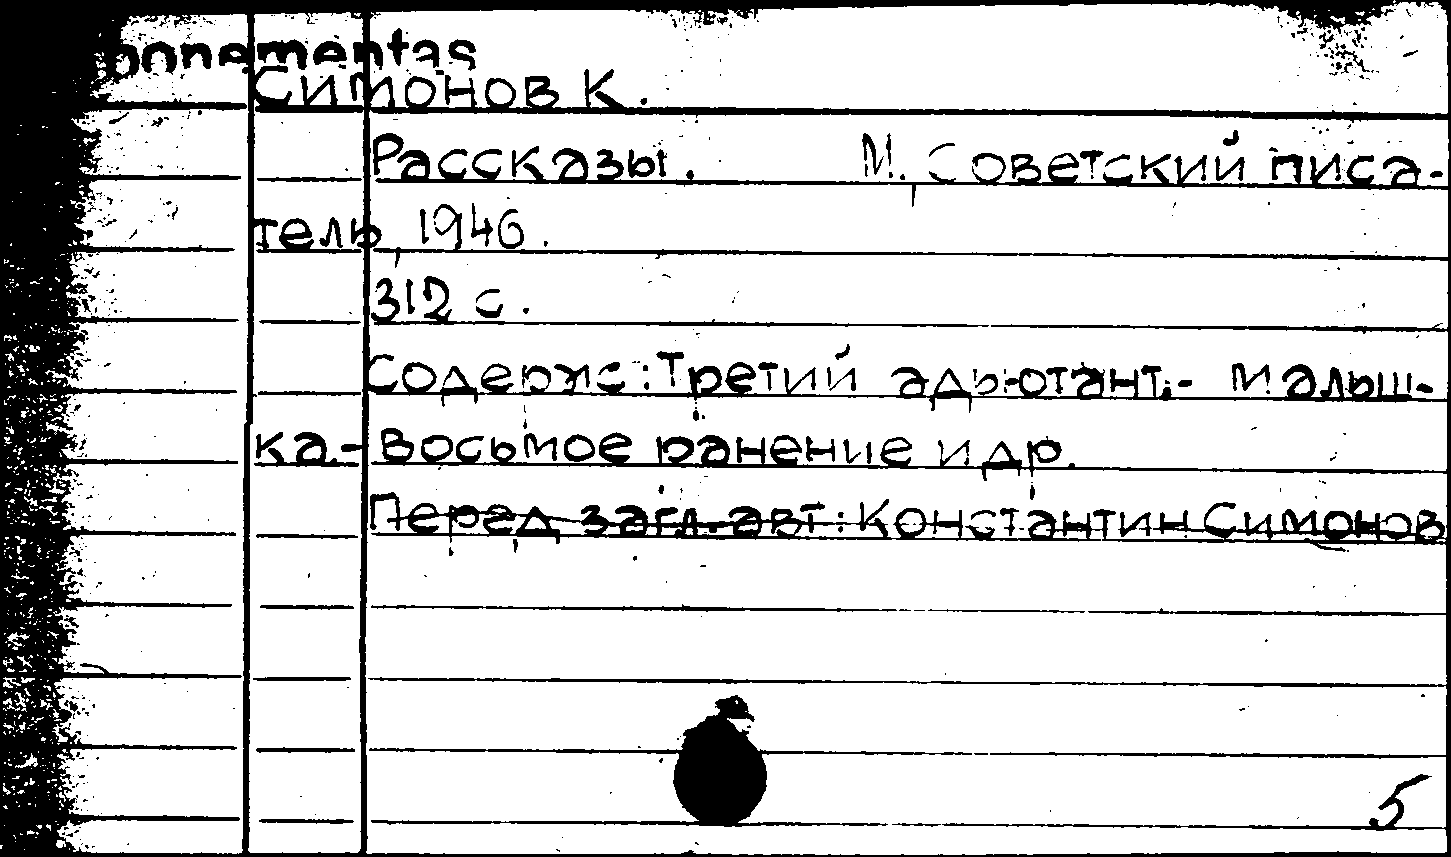 bonementas
Симонов К.
Рассказы. М., Советский писа-
тель, 1946.
312 с.
Содерж: Третий адъютант.- Малыш-
ка.- Восьмое ранение и др.
Перед загл. авт: Константин Симонов
5